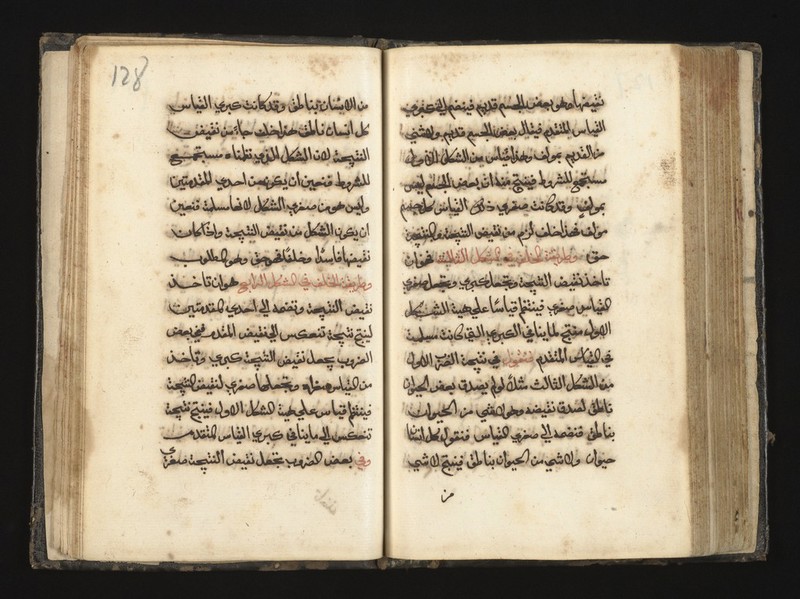 نقيضها وهو بعض الجسم قديم فينضم الى كبرى
القياس المتقدم فيقال بعض الجسم قديم ولا شي
من القديم بمولف وهذا قياس من الشكل الاول
مستجمع للشروط فينتج منه ان بعض الجسم ليس
بمولف وقد كانت صغرى ذلك القياس كل جسم
مولف هذا خلف لزم من نقيض النتيجة والنتيجة
حق وطريقة الخلف في الشكل الثالث هو ان
تاخذ نقيض النتيجة وتجعله كبرى وتجعل صغرى
القياس صغرى فينتظم قياسا على هيئة الشكل
الاول منتج لما ينافي الكبرى التي كانت مسلمة
في القياس المتقدم فنقول في نتيجة الضرب الاول
من الشكل الثالث مثلا لو لم يصدق بعض الحيوان
ناطق لصدق نقيضه وهو لا شي من الحيوان
بناطق فنضمه الى صغرى القياس فنقول كل انسان
حيوان ولا شي من الحيوان بناطق فينتج لا شي
من
128
من الانسان بناطق وقد كانت كبرى القياس
كل انسان ناطق هذا خلف جاء من نقيض
النتيجة لان الشكل الذي نلناه مستجمع
للشروط فتعين ان يكون من احدى المقدمتين
وليس هو من صغرى الشكل لانها مسلمة فتعين
ان يكون الشكل من نقيض النتيجة واذا كان
نقيضها فاسدا وخلفا فهو حق وهو المطلوب
وطريقة الخلف في الشكل الرابع هو ان تاخذ
نقيض النتيجة وتضمه الى احدى المقدمتين
لينتج نتيجة تنعكس الى نقيض المقدمة في بعض
الضروب يجعل نقيض النتيجة كبرى وتاخذ
من القياس صغراه وتجعلها صغرى لنقيض النتيجة
فينتظم قياس على هيئة الشكل الاول فينتج نتيجة
تنعكس الى ما ينافي كبرى القياس المتقدمة
وفي بعض الضروب تجعل نقيض النتيجة صغرى